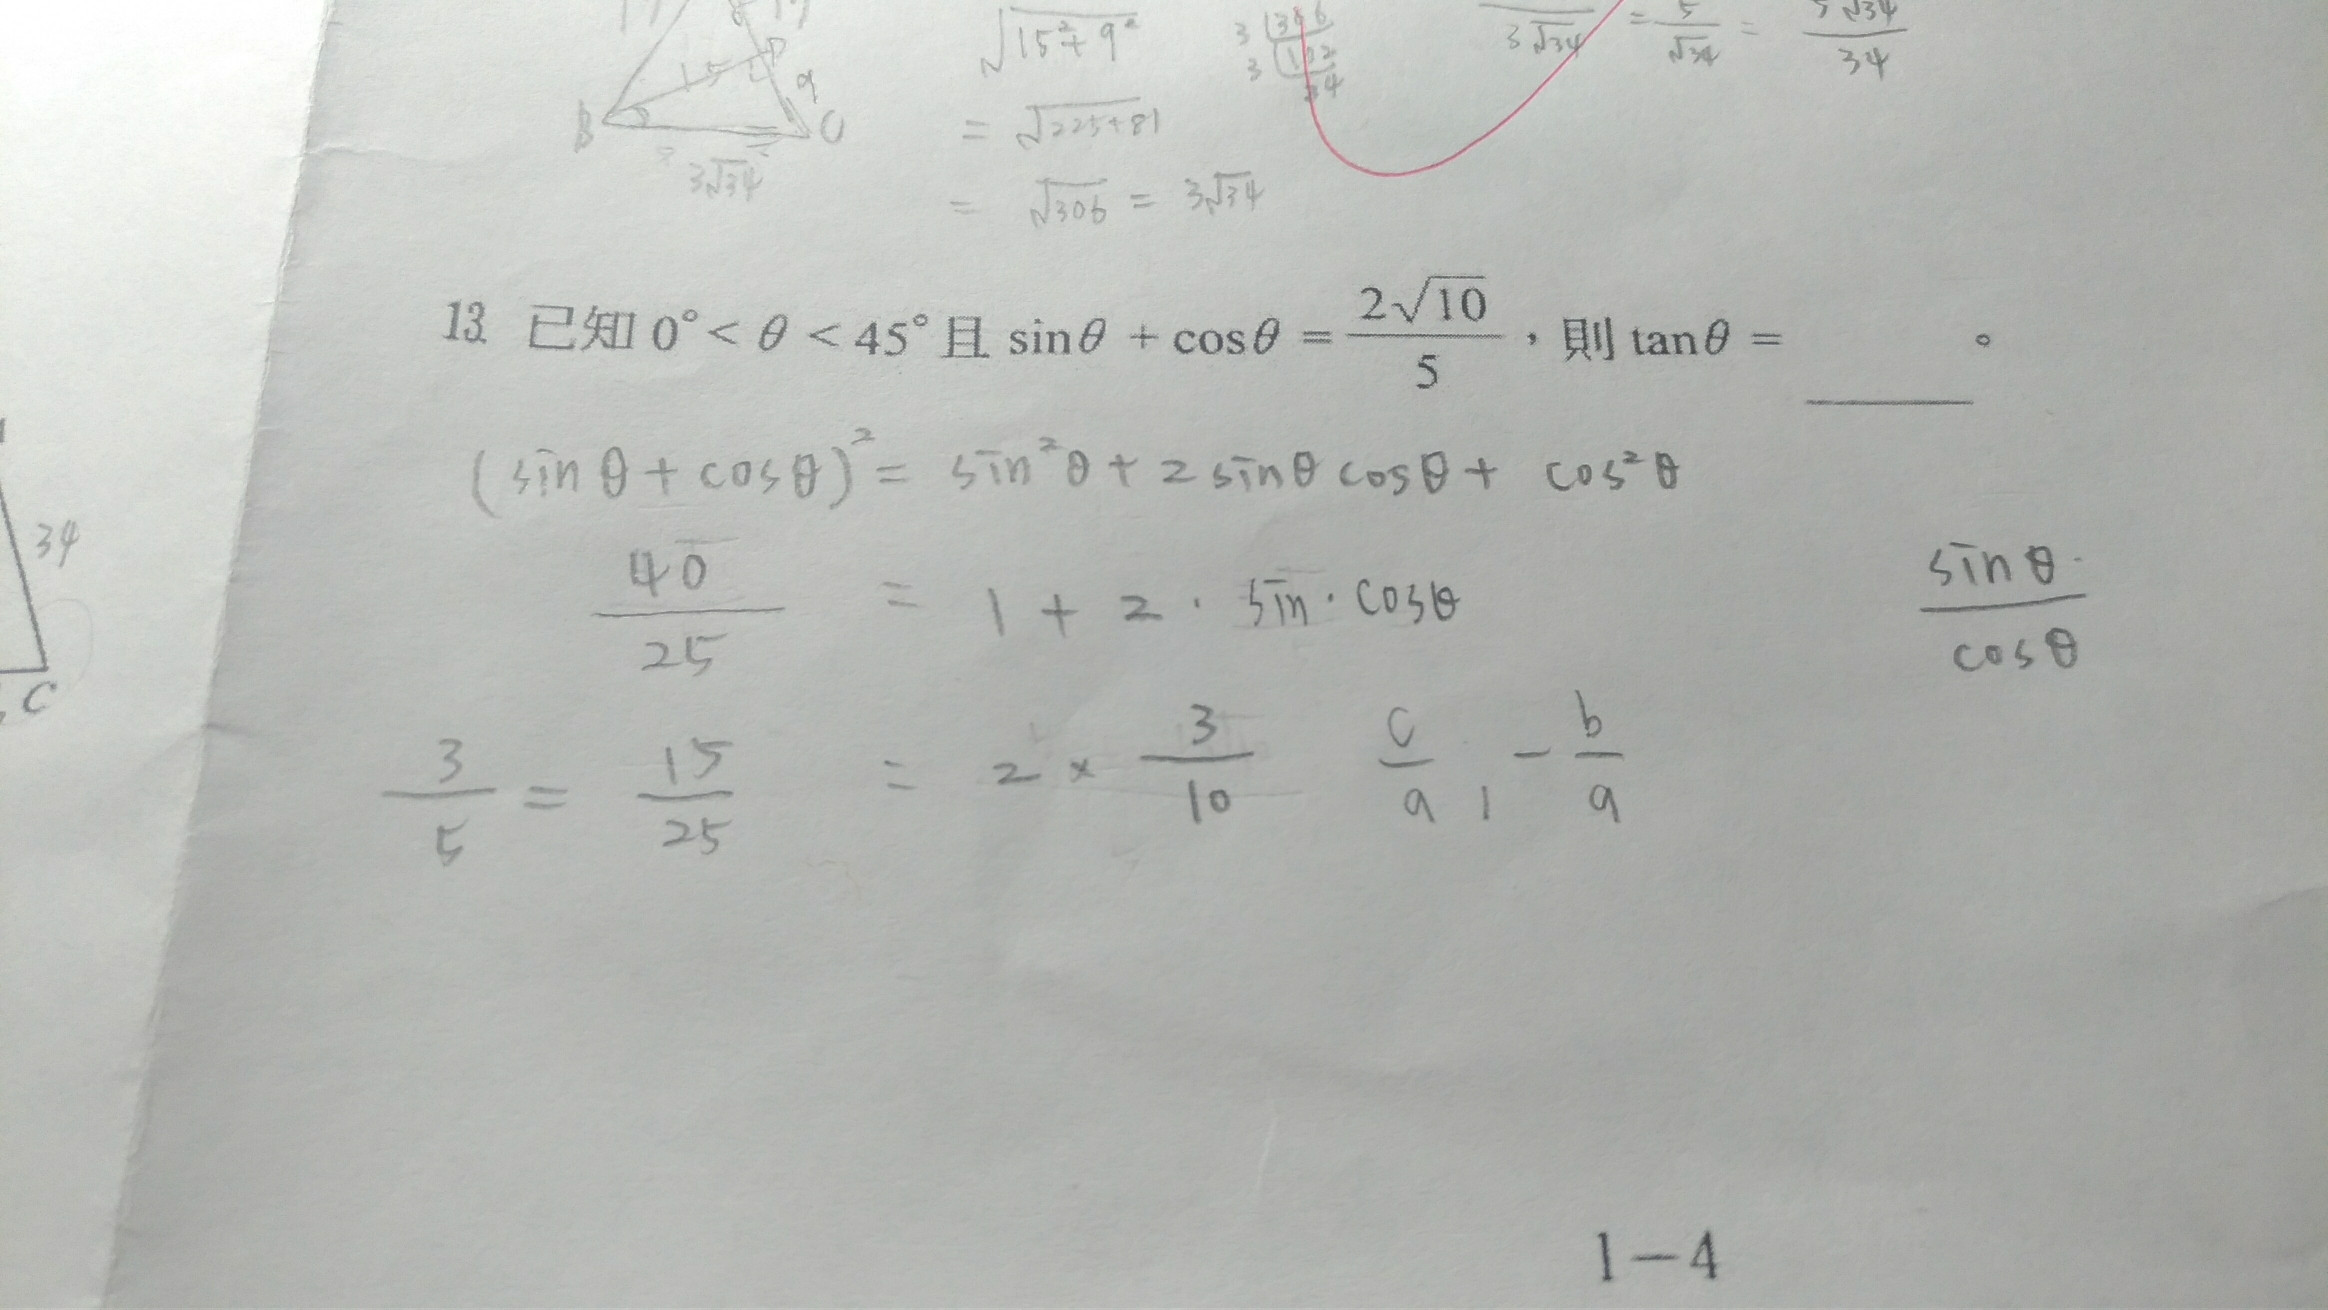 15
D
9
B
C
3√34
√15²+9²
= √225+81
= √306 = 3√34
3 306
3 102
34
3√34 = 5/√34 = 5√34/34
13. 已知 0° < θ < 45° 且 sinθ + cosθ = 2√10/5，則 tanθ = ______。
(sinθ + cosθ)² = sin²θ + 2 sinθ cosθ + cos²θ
40/25 = 1 + 2 · sin · cosθ
sinθ/cosθ
3/5 = 15/25 = 2 × 3/10
c/a , -b/a
34
C
1-4